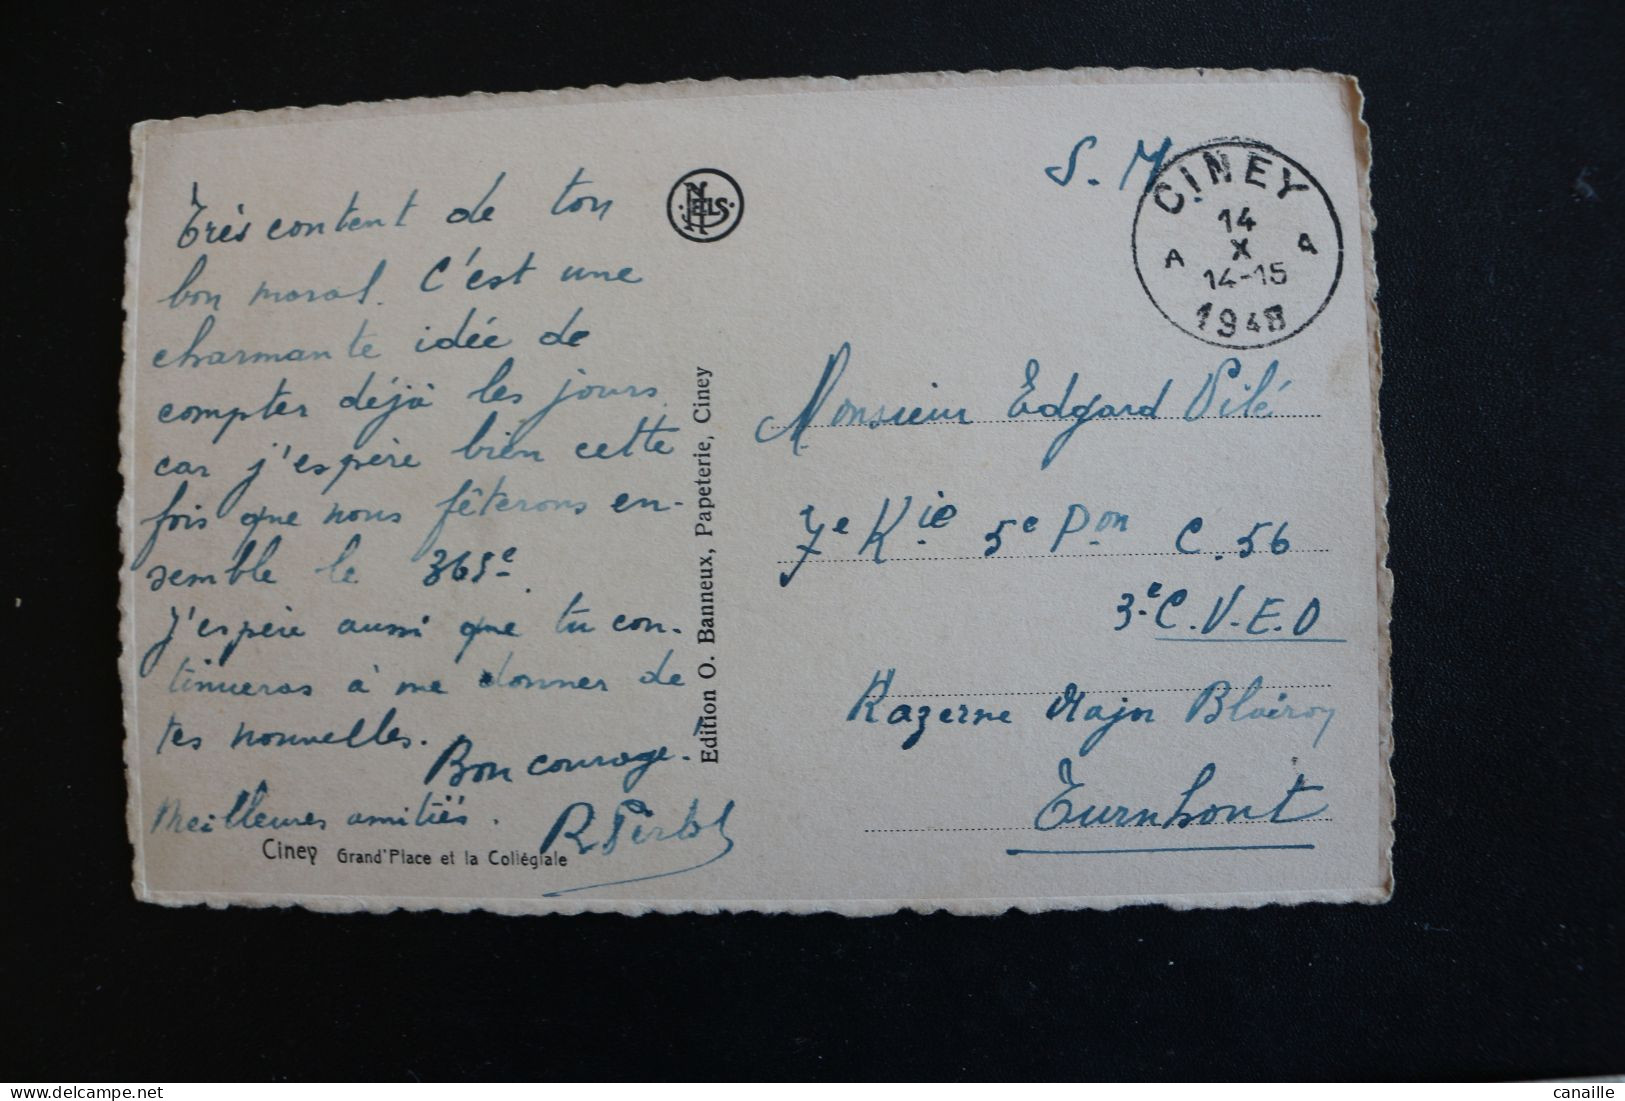 Très content de ton
bon moral. C'est une
charmante idée de
compter déjà les jours
car j'espère bien cette
fois que nous fêterons en-
semble le 365e.
J'espère aussi que tu con-
tinueras à me donner de
tes nouvelles.
Bon courage.
Meilleures amitiés.
Ciney Grand'Place et la Collégiale
NELS
Edition O. Banneux, Papeterie, Ciney
S. M
CINEY
14
X
A A
14-15
1948
Monsieur Edgard Pilé
7e Kie 5e Pon C. 56
3e C. V. E. O
Kazerne Major Blairon
Turnhout
delcampe.net
canaille